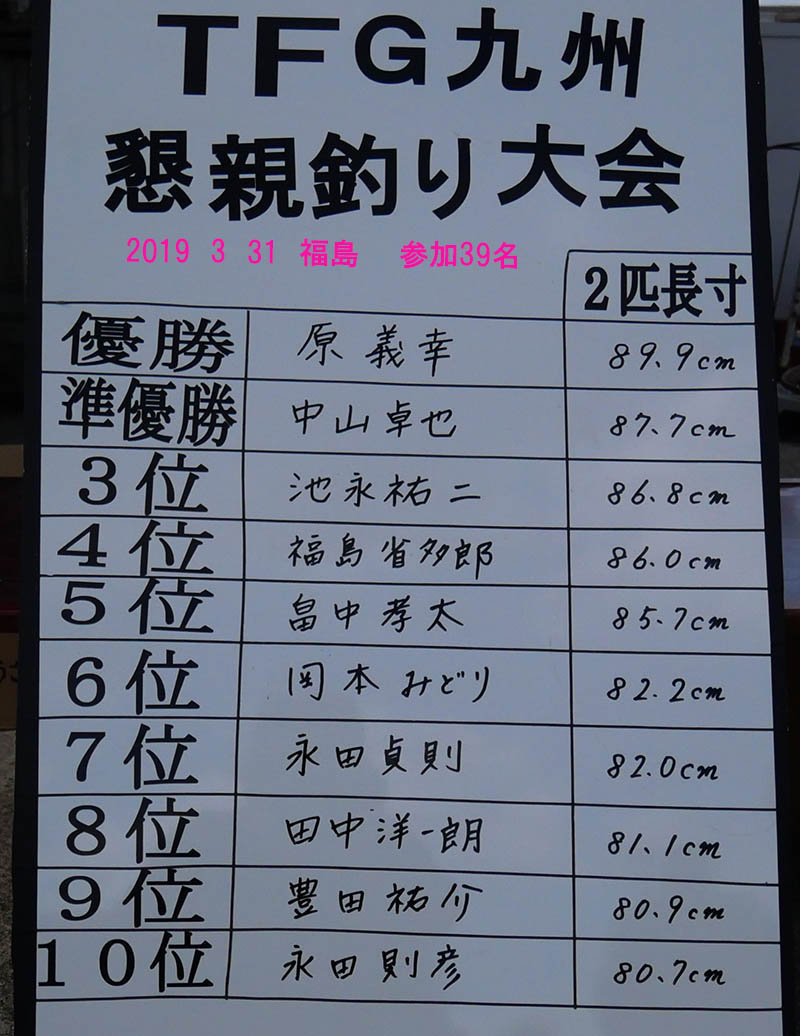 TFG九州
懇親釣り大会
2019 3 31 福島 参加39名
２匹長寸
優勝 原義幸 89.9cm
準優勝 中山卓也 87.7cm
３位 池永祐二 86.8cm
４位 福島省多郎 86.0cm
５位 畠中孝太 85.7cm
６位 岡本みどり 82.2cm
７位 永田貞則 82.0cm
８位 田中洋一朗 81.1cm
９位 豊田祐介 80.9cm
１０位 永田則彦 80.7cm